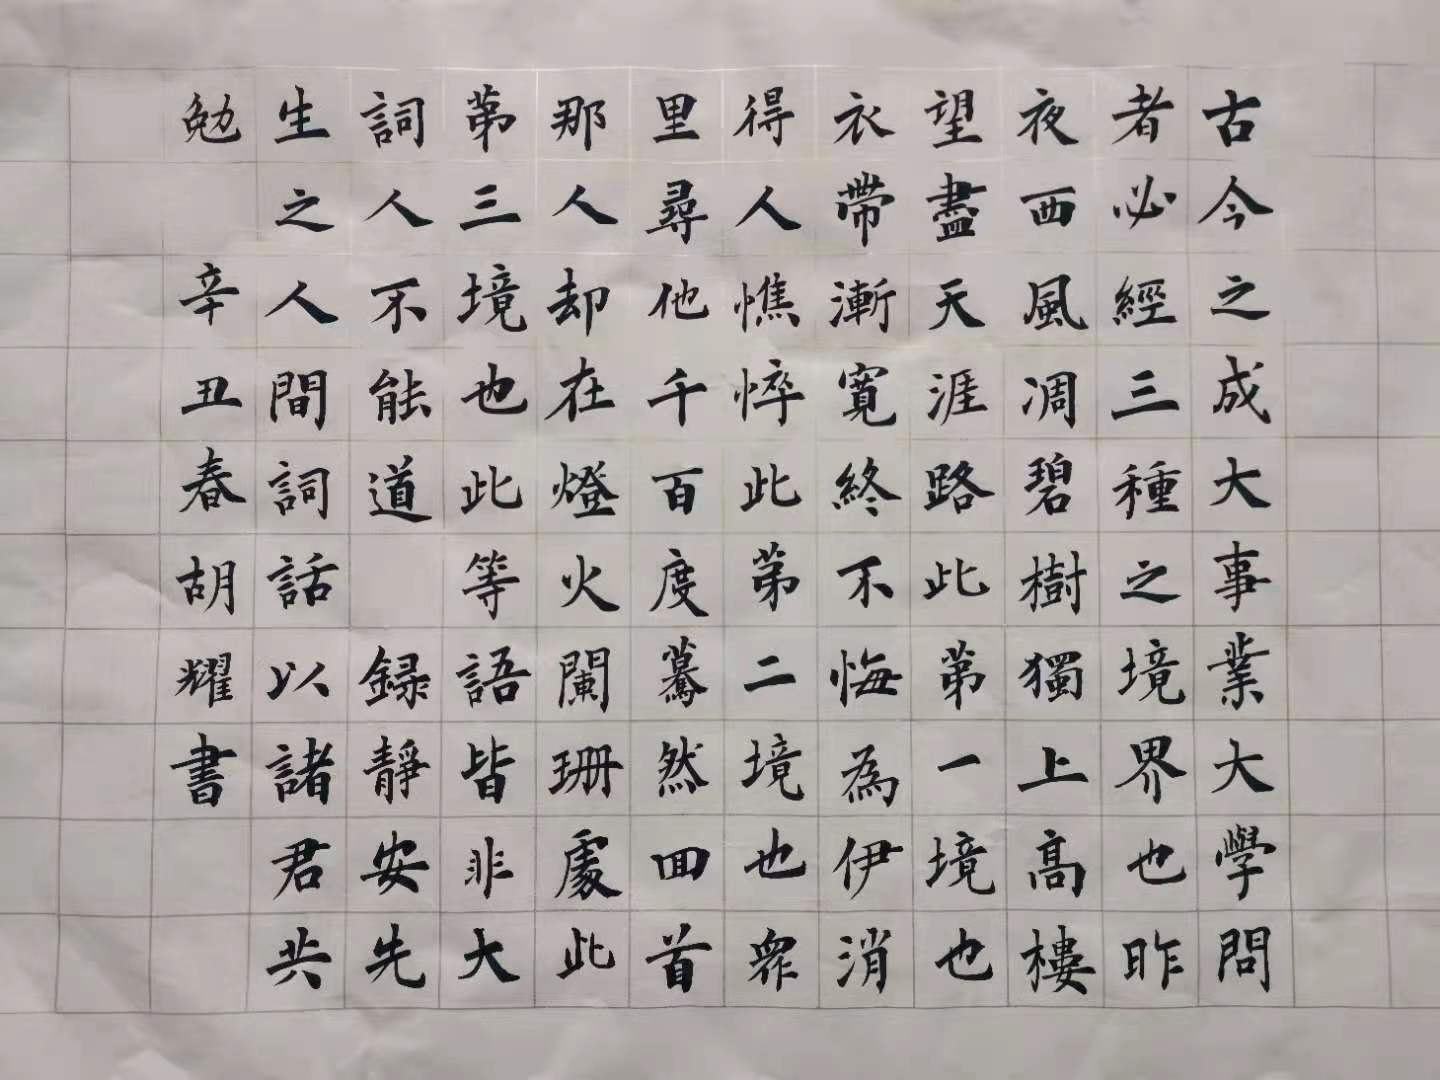 古今之成大事業大學問
者必經三種之境界也昨
夜西風凋碧樹獨上高樓
望盡天涯路此第一境也
衣帶漸寬終不悔為伊消
得人憔悴此第二境也眾
里尋他千百度驀然回首
那人却在燈火闌珊處此
第三境也此等語皆非大
詞人不能道 録靜安先
生之人間詞話以諸君共
勉 辛丑春胡耀書